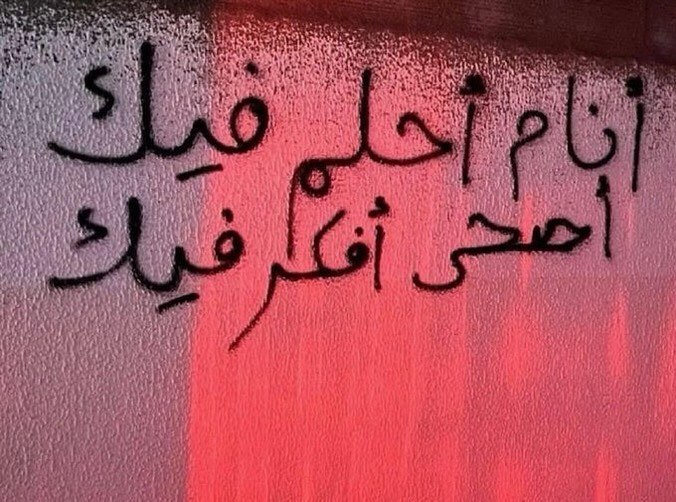 أنام أحلم فيك
أصحى أفكر فيك